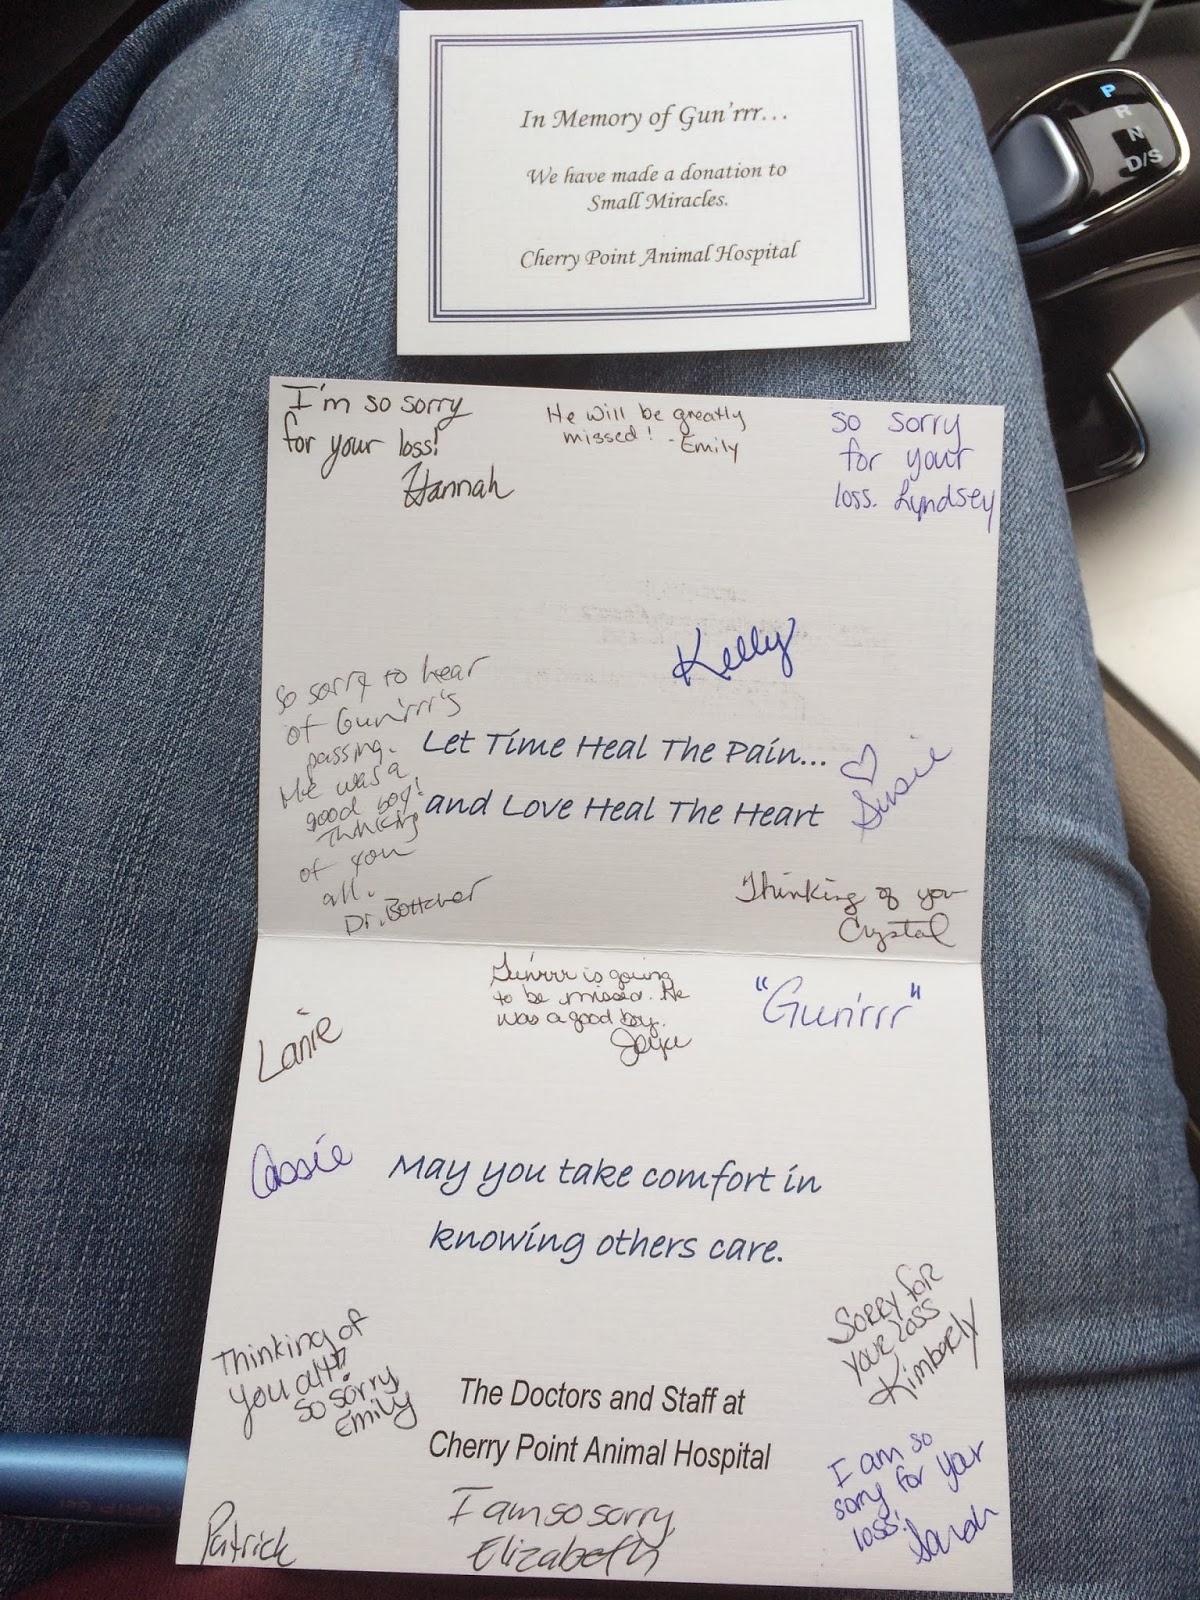 In Memory of Gun'rrr...
We have made a donation to
Small Miracles.
Cherry Point Animal Hospital
P
R
N
D/S
I'm so sorry
for your loss!
Hannah
He will be greatly
missed! - Emily
so sorry
for your
loss. Lyndsey
Kelly
So sorry to hear
of Gun'rrr's
passing.
He was a
good boy!
Thinking
of you
all.
Dr. Bottcher
Let Time Heal The Pain...
and Love Heal The Heart
♡
Susie
Thinking of you
Crystal
Gun'rrr is going
to be missed. He
was a good boy.
Joyce
"Gun'rrr"
Lanie
Cassie
May you take comfort in
knowing others care.
Thinking of
you all!
so sorry
Emily
Sorry for
your loss
Kimberly
The Doctors and Staff at
Cherry Point Animal Hospital
I am so
sorry for your
loss!
Sarah
Patrick
I am so sorry
Elizabeth